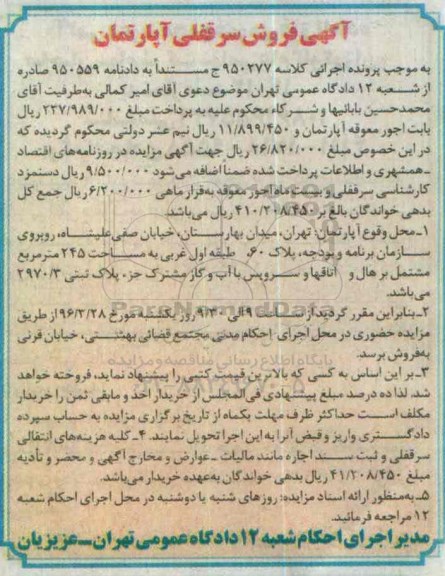 آگهی فروش سرقفلی آپارتمان
به موجب پرونده اجرائی کلاسه ۹۵۰۲۷۷ ج مستنداً به دادنامه ۹۵۰۵۵۹ صادره
از شعبه ۱۲ دادگاه عمومی تهران موضوع دعوی آقای امیر کمالی به‌طرفیت آقای
محمدحسین بابائیها و شرکاء محکوم علیه به پرداخت مبلغ ۲۳۷/۹۸۹/۰۰۰ ریال
بابت اجور معوقه آپارتمان و ۱۱/۸۹۹/۴۵۰ ریال نیم عشر دولتی محکوم گردیده که
در این خصوص مبلغ ۲۶/۸۲۰/۰۰۰ ریال جهت آگهی مزایده در روزنامه‌های اقتصاد
ـ همشهری و اطلاعات پرداخت شده ضمناً اضافه می‌شود ۹/۵۰۰/۰۰۰ ریال دستمزد
کارشناسی سرقفلی و بیست ماه اجور معوقه به‌قرار ماهی ۶/۲۰۰/۰۰۰ ریال جمع کل
بدهی خواندگان بالغ بر ۴۱۰/۲۰۸/۴۵۰ ریال می‌باشد.
۱ـ محل وقوع آپارتمان: تهران، میدان بهارستان، خیابان صفی‌علیشاه، روبروی
سازمان برنامه و بودجه، پلاک ۶۰، طبقه اول غربی به مساحت ۲۴۵ مترمربع
مشتمل بر هال و اتاقها و سرویس با آب و گاز مشترک جزء پلاک ثبتی ۲۹۷۰/۳
می‌باشد.
۲ـ بنابراین مقرر گردید از ساعت ۹ الی ۹/۳۰ روز یکشنبه مورخ ۹۶/۳/۲۸ از طریق
مزایده حضوری در محل اجرای احکام مدنی مجتمع قضائی بهشتی، خیابان قرنی
به‌فروش برسد.
۳ـ بر این اساس به کسی که بالاترین قیمت کتبی را پیشنهاد نماید، فروخته خواهد
شد. لذا ده درصد مبلغ پیشنهادی فی‌المجلس از خریدار اخذ و مابقی ثمن را خریدار
مکلف است حداکثر ظرف مهلت یکماه از تاریخ برگزاری مزایده به حساب سپرده
دادگستری واریز و قبض آنرا به این اجرا تحویل نمایند. ۴ـ کلیه هزینه‌های انتقالی
سرقفلی و ثبت سند اجاره مانند مالیات ـ عوارض و مخارج آگهی و محضر و تأدیه
مبلغ ۴۱/۲۰۸/۴۵۰ ریال بدهی خواندگان به‌عهده خریدار می‌باشد.
۵ـ به‌منظور ارائه اسناد مزایده: روزهای شنبه یا دوشنبه در محل اجرای احکام شعبه
۱۲ مراجعه فرمائید.
مدیر اجرای احکام شعبه ۱۲ دادگاه عمومی تهران ـ عزیزیان